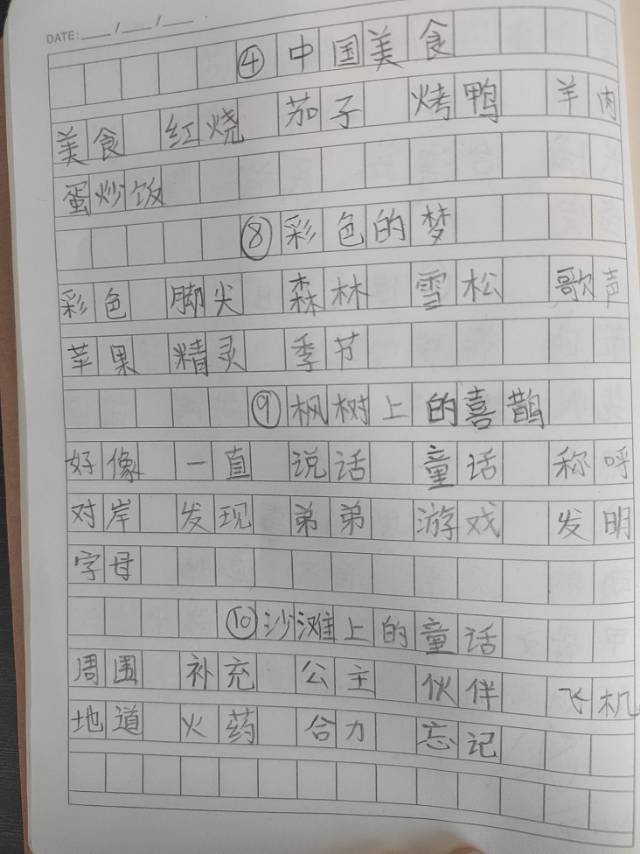 DATE: ___/___/___
④中国美食
美食 红烧 茄子 烤鸭 羊肉
蛋炒饭
⑧彩色的梦
彩色 脚尖 森林 雪松 歌声
苹果 精灵 季节
⑨枫树上的喜鹊
好像 一直 说话 童话 称呼
对岸 发现 弟弟 游戏 发明
字母
⑩沙滩上的童话
周围 补充 公主 伙伴 飞机
地道 火药 合力 忘记